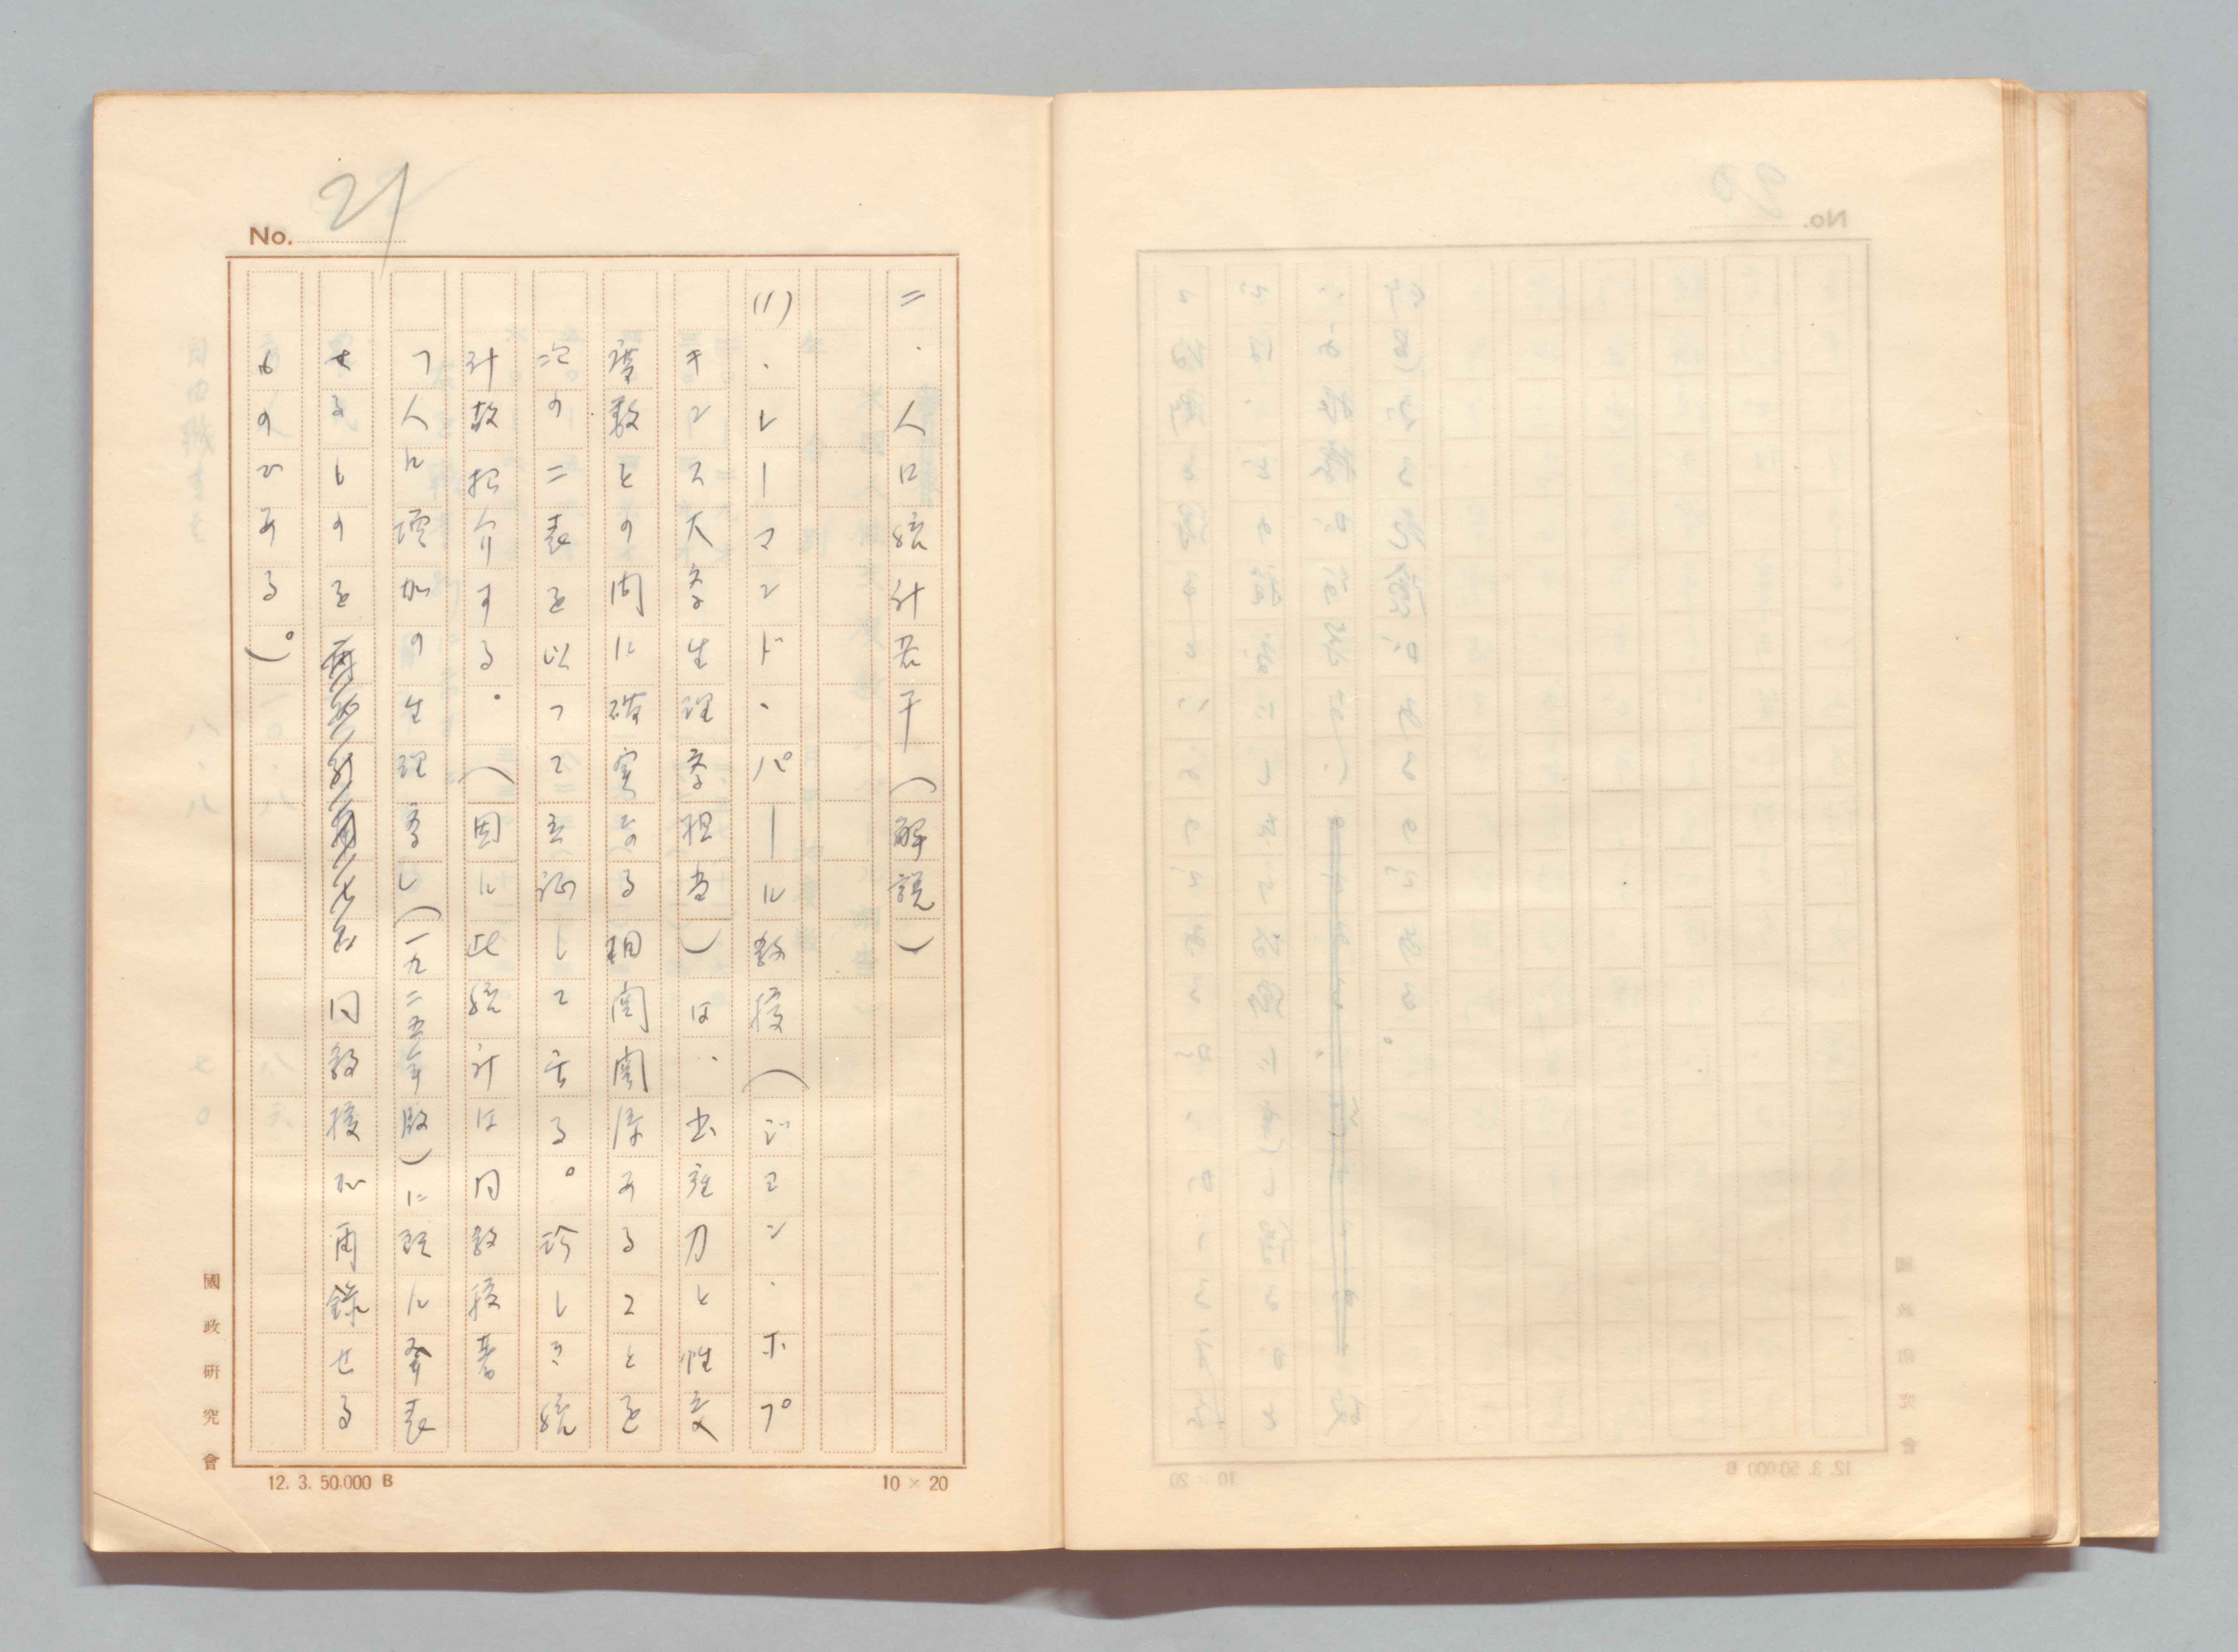 No. 21
二.人口統計若干(解説)
(1)、レーマンド、パール教授(ジョン.ホプ
キンス大学生理学担当)は、出産力と性交
度数との間に確実なる相関関係あることを
次の二表を以つて立証して居る。珍しき統
計故紹介する。(因に此統計は同教授著
「人に増加の生理学」(一九二五年版)に既に発表
せるものを 同教授が再録せる
ものである。)
國政研究會
12. 3. 50.000 B
10 × 20